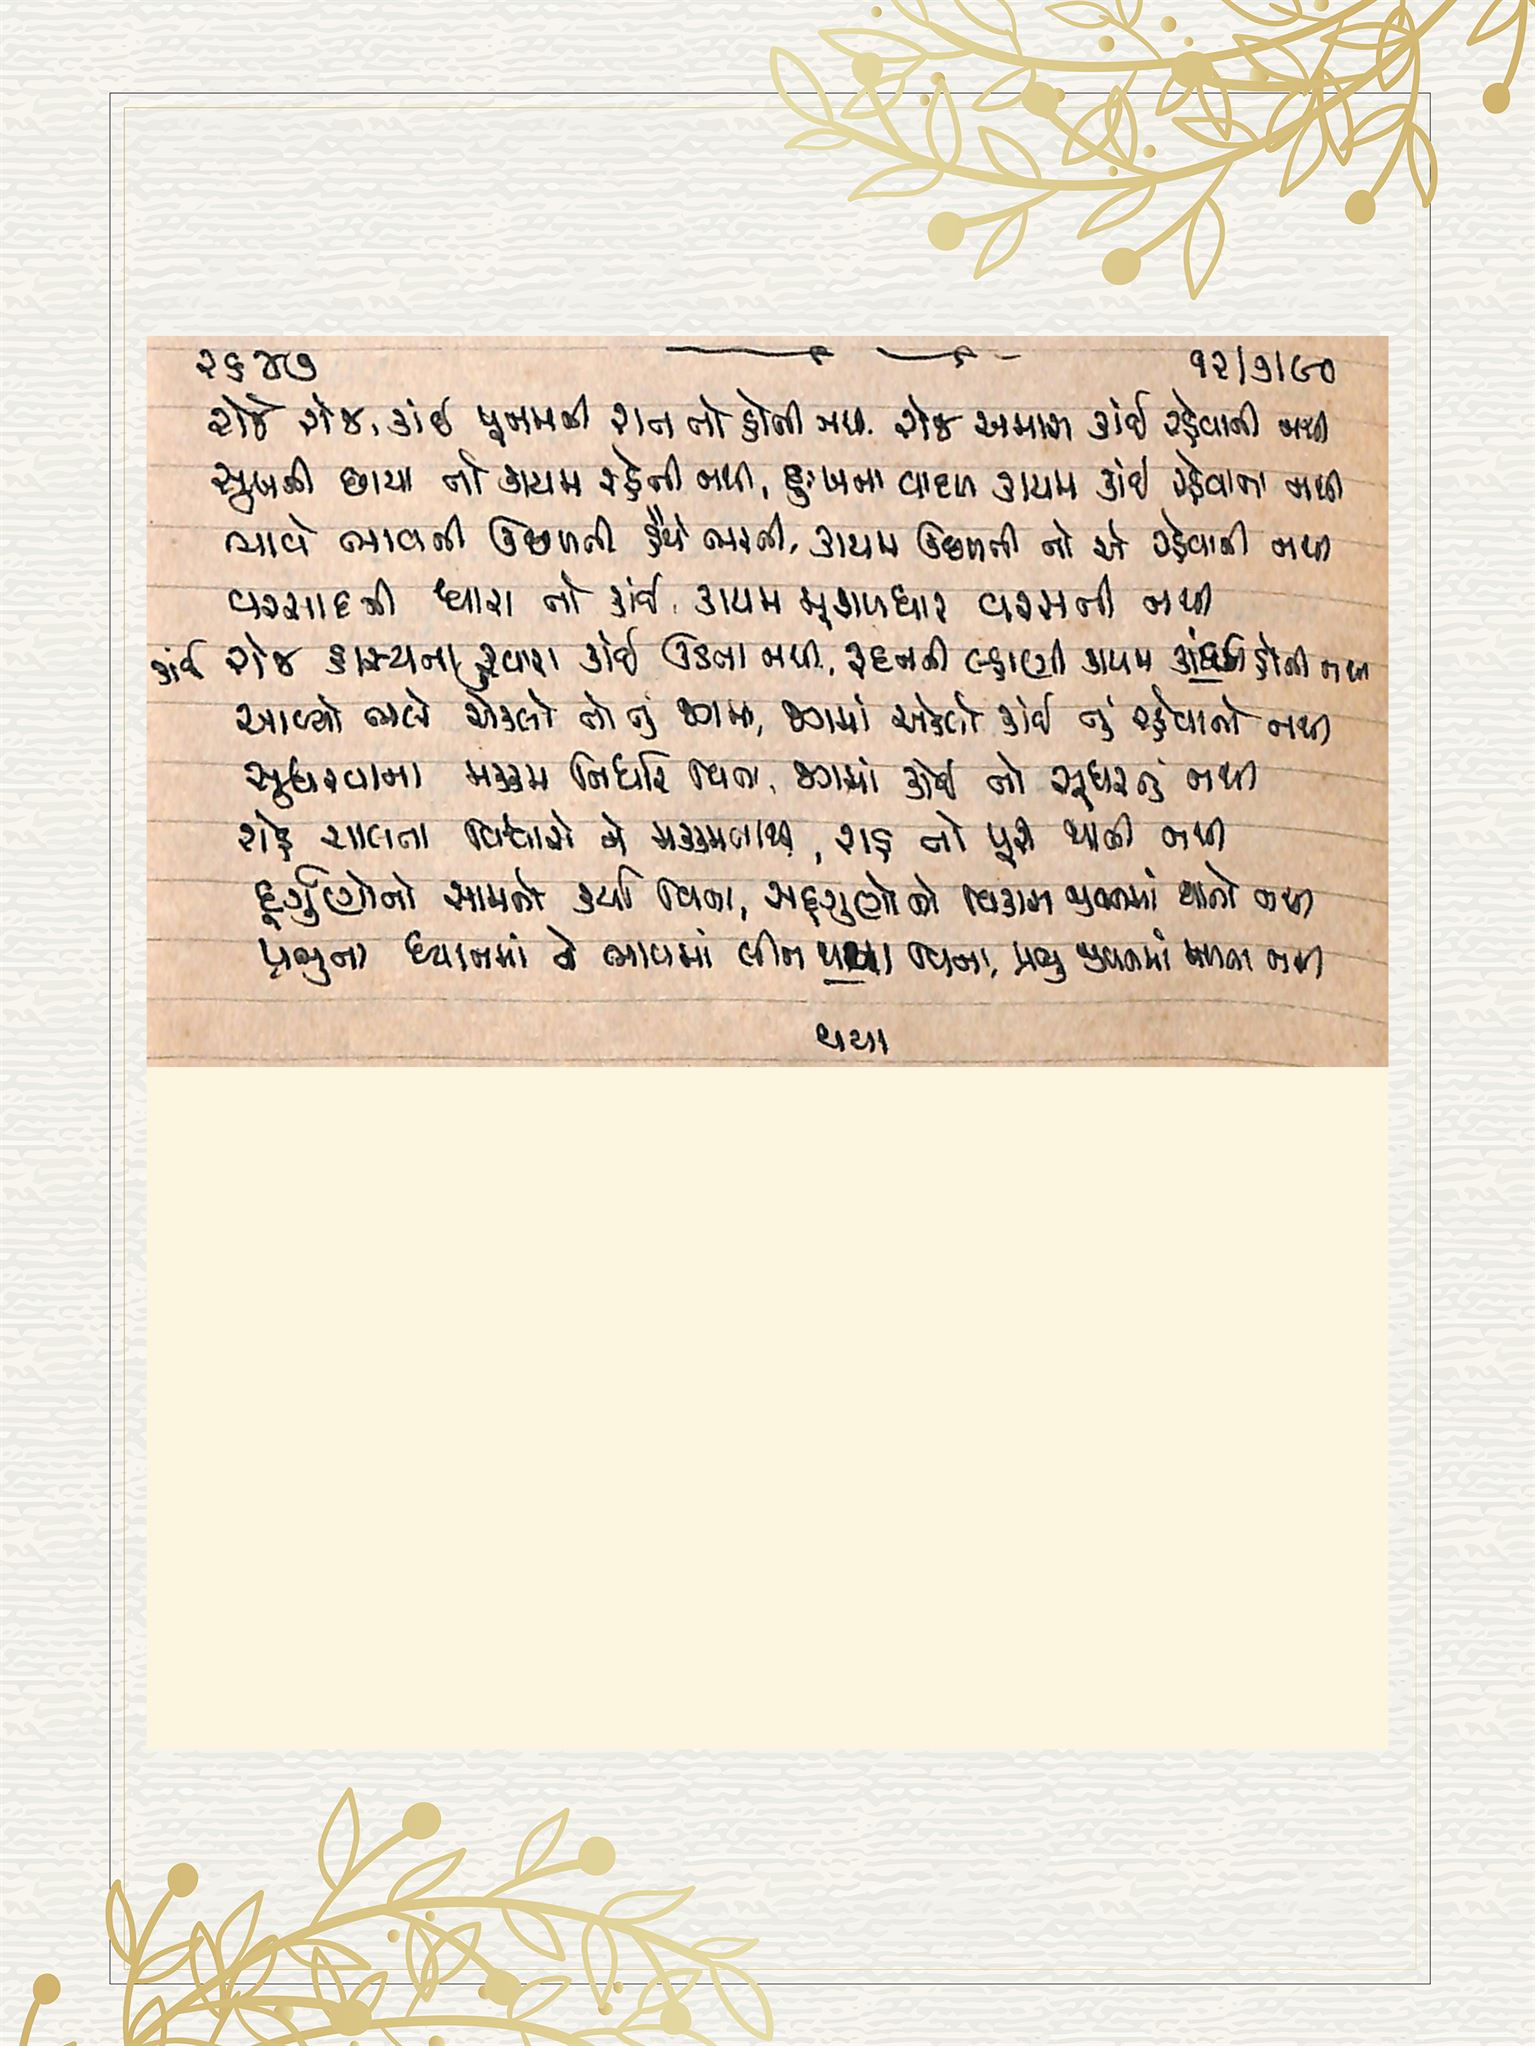 ૨૬૪૭ ૧૨/૭/૯૦
રોજે રોજ, કાંઈ પૂનમની રાત તો હોતી નથી. રોજ અમાસ કાંઈ રહેવાની નથી
સુખની છાયા તો કાયમ રહેતી નથી, દુઃખના વાદળ કાયમ કાંઈ રહેવાના નથી
ભાવે ભાવની ઉછળતી હૈયે ભરતી, કાયમ ઉછળતી તો એ રહેવાની નથી
વરસાદની ધારા તો કાંઈ, કાયમ મૂશળધાર વરસતી નથી
કાંઈ રોજ હાસ્યના ફુવારા કાંઈ ઉડતા નથી, રૂદનની લ્હાણી કાયમ કાંઈ હોતી નથી
આવ્યો ભલે એકલો તો તું જગમાં, જગમાં એકલો કાંઈ તું રહેવાનો નથી
સુધરવાના મક્કમ નિર્ધાર વિના, જગમાં કોઈ તો સૂધરતું નથી
રાહે ચાલતા વિચારો ને મક્કમતાથી, રાહ તો પૂરી થાતી નથી
દૂર્ગુણોનો સામનો કર્યા વિના, સદ્ગુણોનો વિકાસ જીવનમાં થાતો નથી
પ્રભુના ધ્યાનમાં ને ભાવમાં લીન થયા વિના, પ્રભુ જીવનમાં મળતા નથી
થયા